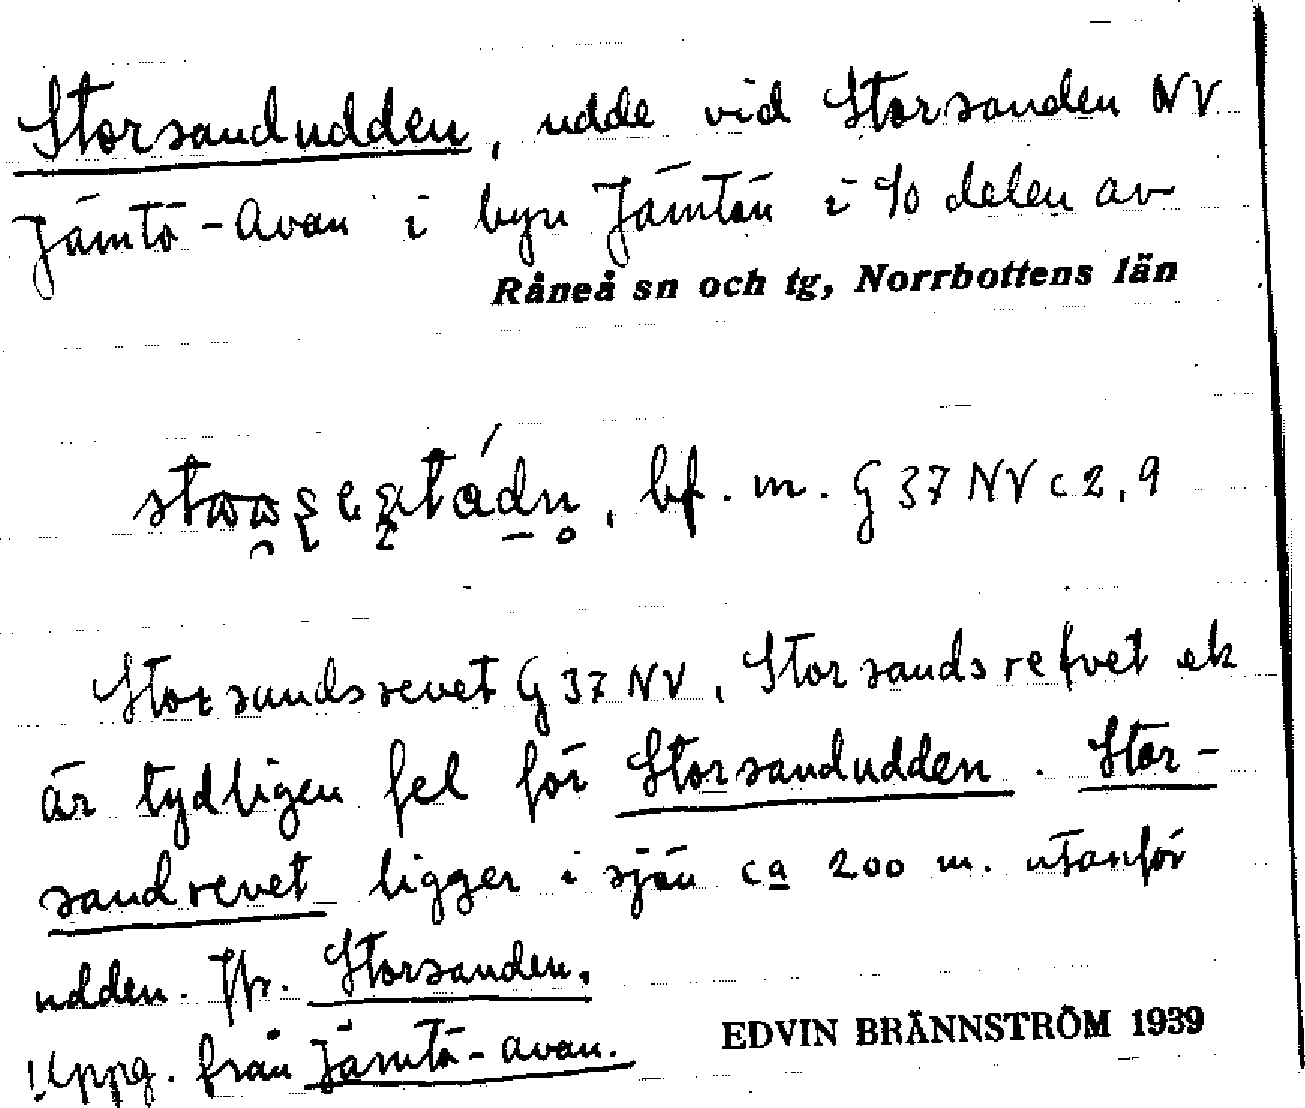 Storsandudden, udde vid Storsanden NV
Jämtö-Avan i byn Jämtön i SO delen av
Råneå sn och tg, Norrbottens län
bf. m. G 37 NV c 2, 9
Storsandsrevet G 37 NV, Storsandsrefvet ek
är tydligen fel för Storsandudden. Stor-
sandrevet ligger i sjön ca 200 m. utanför
udden. Jfr. Storsanden.
Uppg. från Jämtö-Avan.
EDVIN BRÄNNSTRÖM 1939